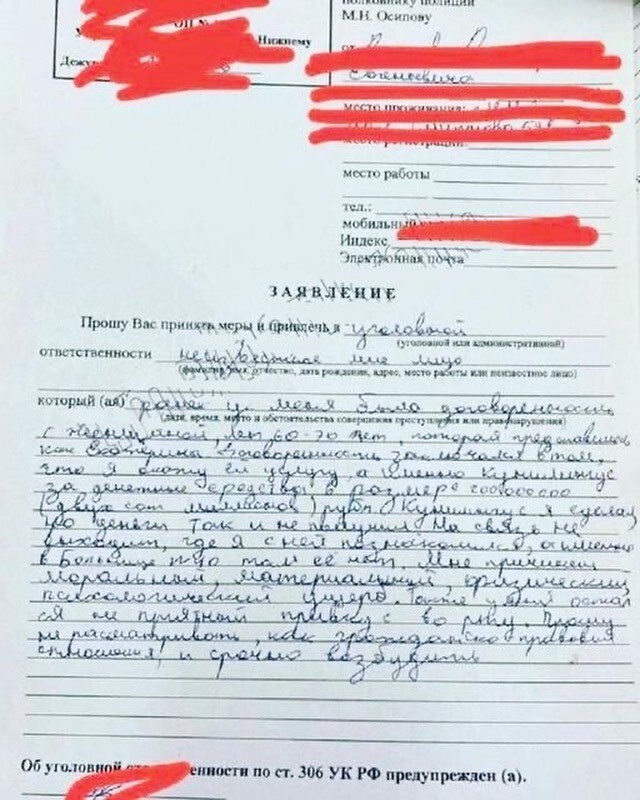 полковнику полиции
М.Н. Осипову
ОП №
Нижнему
от
Деж
Евгеньевича
место проживания:
место регистрации
место работы
тел.:
мобильный
Индекс
Электронная почта
ЗАЯВЛЕНИЕ
Прошу Вас принять меры и привлечь к уголовной
(уголовной или административной)
ответственности неизвестное мне лицо
(фамилия, имя, отчество, дата рождения, адрес, место работы или неизвестное лицо)
который (ая) ранее у меня была договоренность
(дата, время, место и обстоятельства совершения преступления или правонарушения)
с женщиной, лет 60-70 лет, которая представилась
как Екатерина договоренность заключался в том,
что я окажу ей услугу, а именно Кунилингус
за денежные средства в размере 200000000
(двух сот миллионов) рубл. Кунилингус я сделал,
но деньги так и не получил. На связь не
выходит, где я с ней познакомился, а именно
в больнице что там её нет. Мне причинен
моральный, материальный, физический
психологический ущерб. Также у меня остал
ся не приятный привкус во рту. Прошу
не рассматривать, как гражданско правовые
отношения, и срочно возбудить
Об уголовной енности по ст. 306 УК РФ предупрежден (а).